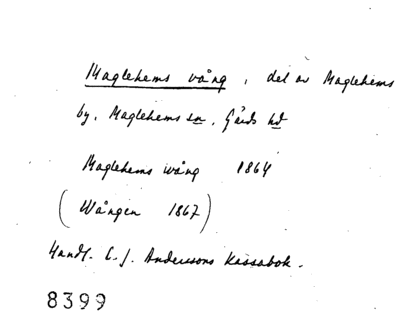 Maglehems vång, del av Maglehems
by, Maglehems sn, Gärds hd
Maglehems wång 1864
(Wången 1867)
Handl. C. J. Anderssons Kassabok.
8399